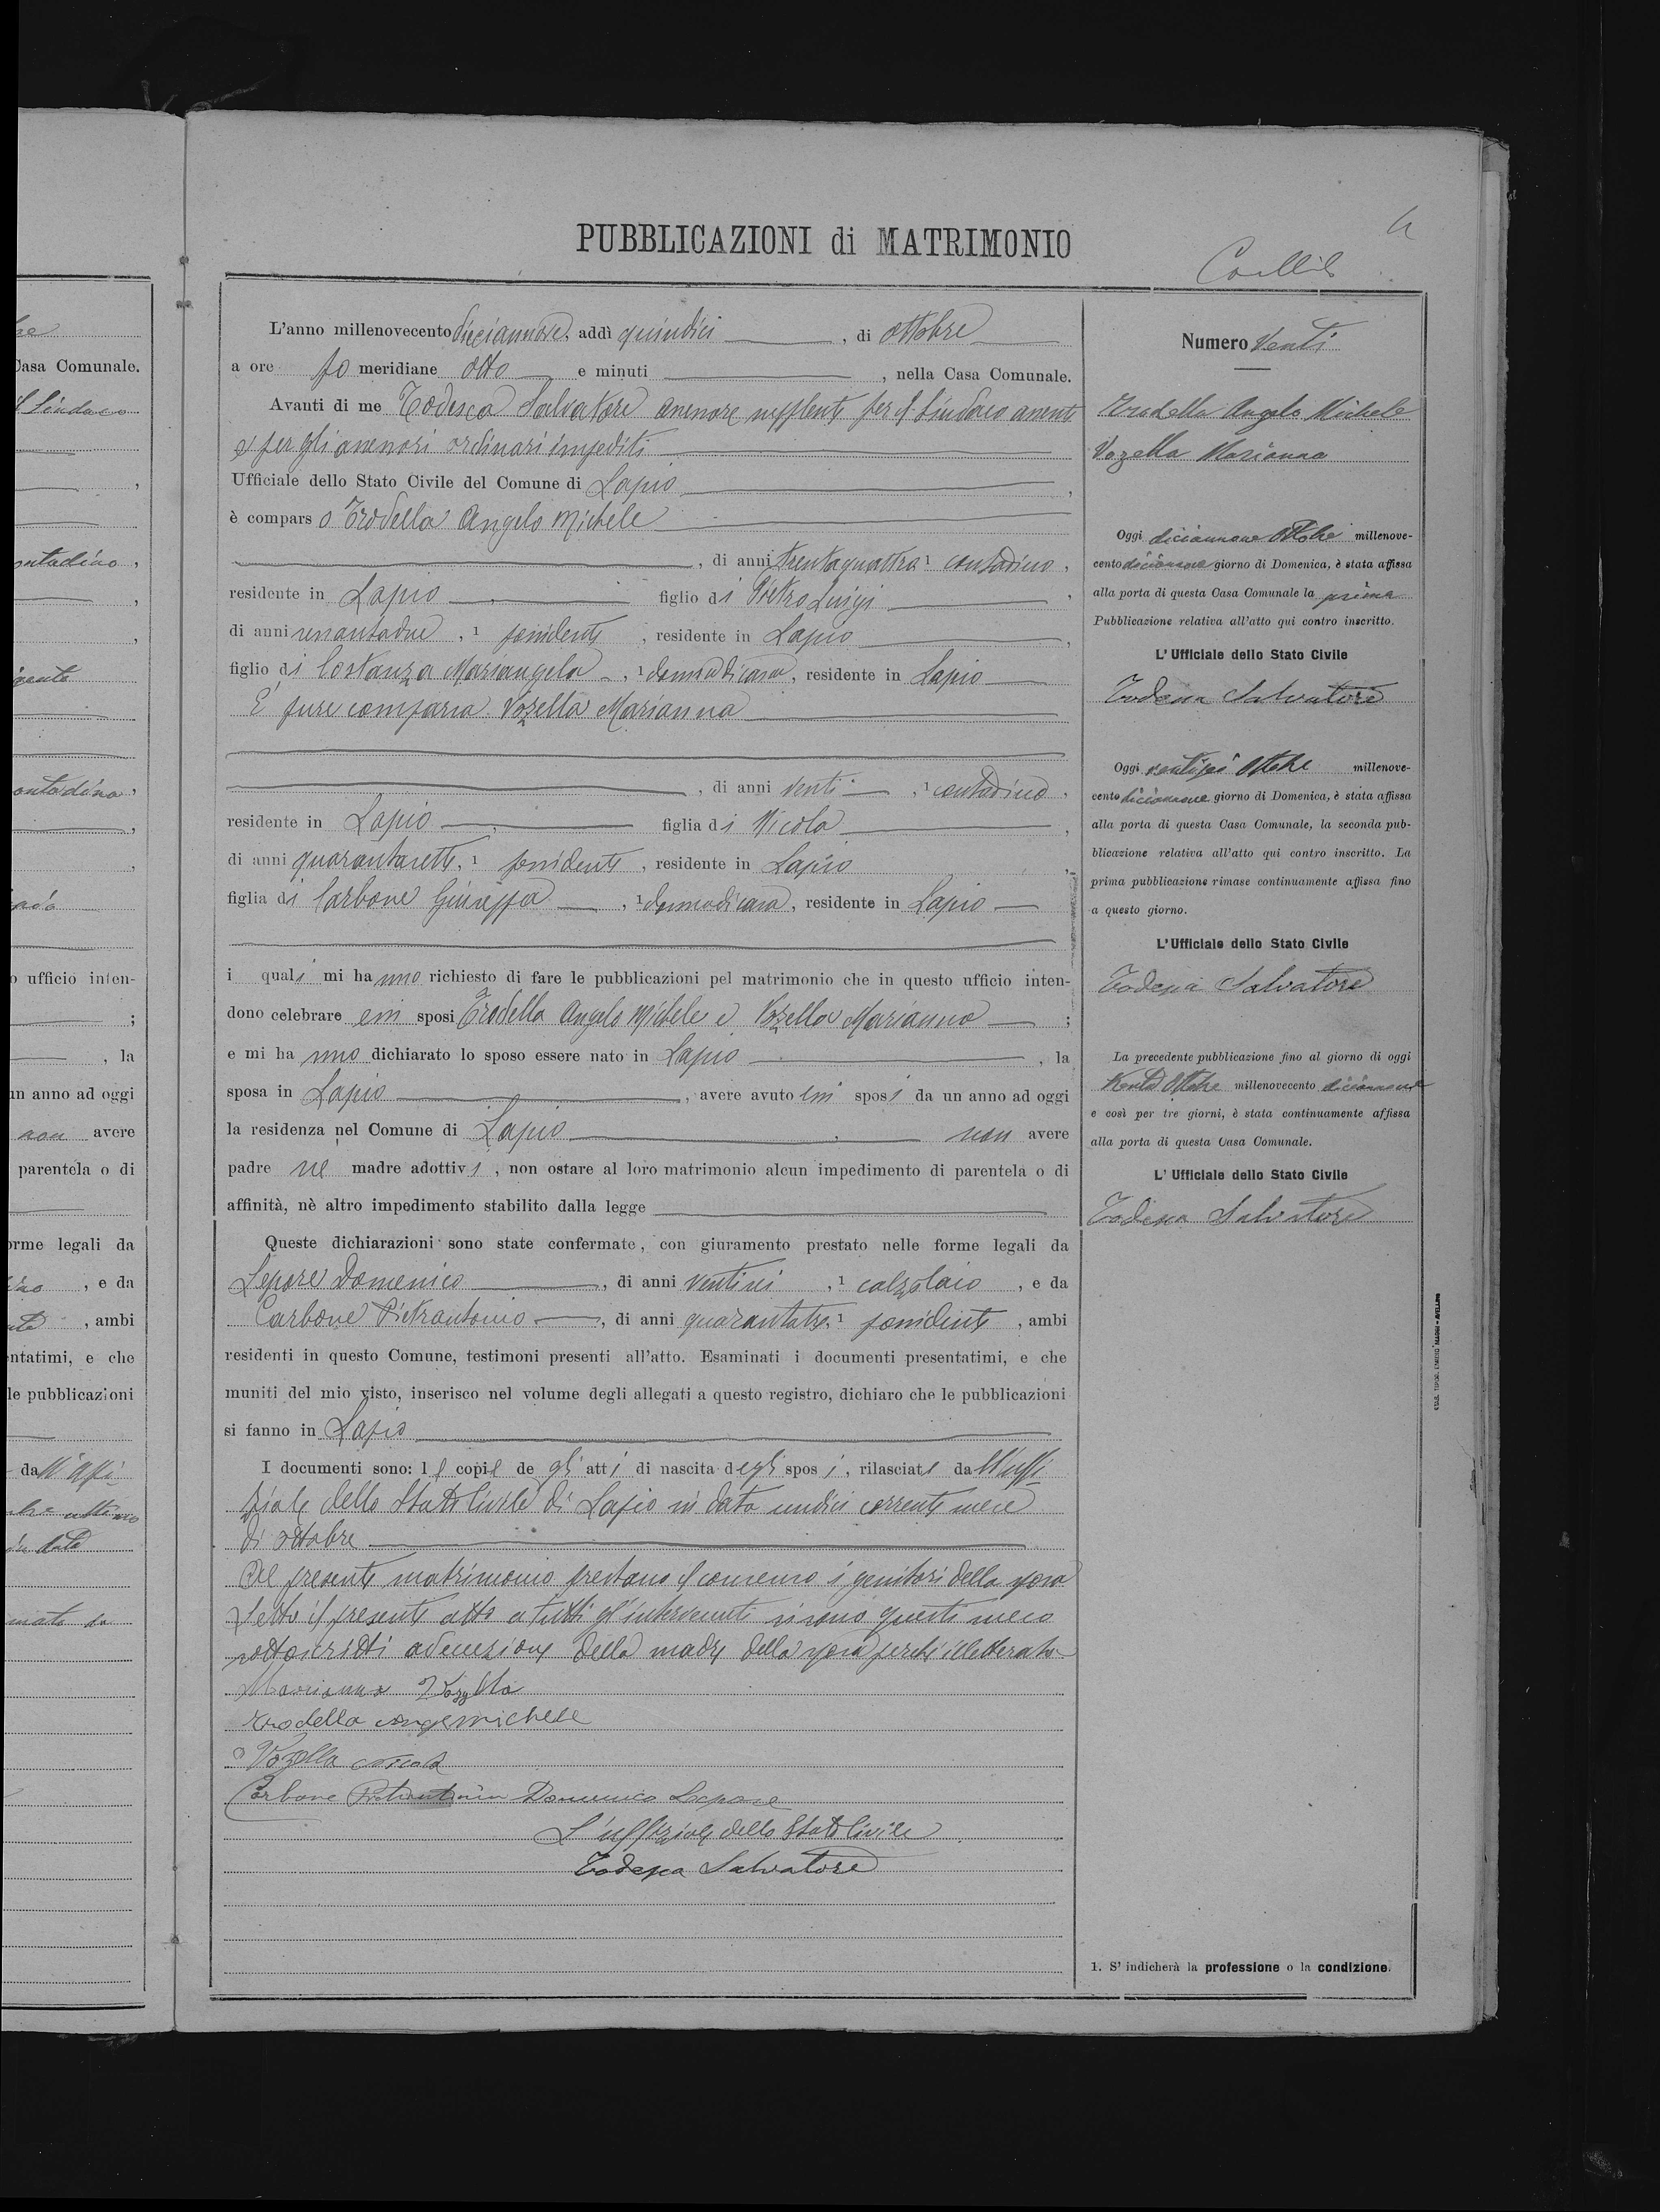 PUBBLICAZIONI di MATRIMONIO
L'anno millenovecento diciannove, addì quindici, di ottobre
a ore po meridiane otto e minuti, nella Casa Comunale.
Avanti di me Todesca Salvatore assessore supplente per il Sindaco assente
e per gli assessori ordinari impediti
Ufficiale dello Stato Civile del Comune di Lapio,
è comparso Trodella Angelo Michele
, di anni trentaquattro 1 contadino,
residente in Lapio, figlio di Pietro Luigi,
di anni sessantadue, 1 possidente, residente in Lapio,
figlio di Costanza Mariangela, 1 donna di casa, residente in Lapio
È pure comparsa Vozella Marianna
, di anni venti, 1 contadina,
residente in Lapio, figlia di Nicola,
di anni quarantasette, 1 possidente, residente in Lapio,
figlia di Carbone Giuseppa, 1 donna di casa, residente in Lapio
i quali mi hanno richiesto di fare le pubblicazioni pel matrimonio che in questo ufficio inten-
dono celebrare essi sposi Trodella Angelo Michele e Vozella Marianna;
e mi hanno dichiarato lo sposo essere nato in Lapio, la
sposa in Lapio, avere avuto essi sposi da un anno ad oggi
la residenza nel Comune di Lapio, non avere
padre nè madre adottivi, non ostare al loro matrimonio alcun impedimento di parentela o di
affinità, nè altro impedimento stabilito dalla legge
Queste dichiarazioni sono state confermate, con giuramento prestato nelle forme legali da
Lepore Domenico, di anni ventisei, 1 calzolaio, e da
Carbone Pietrantonio, di anni quarantatre, 1 possidente, ambi
residenti in questo Comune, testimoni presenti all'atto. Esaminati i documenti presentatimi, e che
muniti del mio visto, inserisco nel volume degli allegati a questo registro, dichiaro che le pubblicazioni
si fanno in Lapio
I documenti sono: le copie degli atti di nascita degli sposi, rilasciate dall'uffi
ziale dello Stato Civile di Lapio in data undici corrente mese
di ottobre
Al presente matrimonio prestano il consenso i genitori della sposa
Letto il presente atto a tutti gl'intervenuti si sono questi meco
sottoscritti ad eccezione della madre della sposa perchè illetterata
Marianna Vozella
Trodella Angelmichele
Vozella Nicola
Carbone Pietrantonio Domenico Lepore
L'uffiziale dello Stato Civile
Todesca Salvatore
Numero Venti
Trodella Angelo Michele
Vozella Marianna
Oggi diciannove Ottobre millenove-
cento diciannove giorno di Domenica, è stata affissa
alla porta di questa Casa Comunale la prima
Pubblicazione relativa all'atto qui contro inscritto.
L'Ufficiale dello Stato Civile
Todesca Salvatore
Oggi ventisei Ottobre millenove-
cento diciannove giorno di Domenica, è stata affissa
alla porta di questa Casa Comunale, la seconda pub-
blicazione relativa all'atto qui contro inscritto. La
prima pubblicazione rimase continuamente affissa fino
a questo giorno.
L'Ufficiale dello Stato Civile
Todesca Salvatore
La precedente pubblicazione fino al giorno di oggi
Ottobre millenovecento diciannove
e così per tre giorni, è stata continuamente affissa
alla porta di questa Casa Comunale.
L'Ufficiale dello Stato Civile
Todesca Salvatore
1. S'indicherà la professione o la condizione.
Casa Comunale.
il Sindaco
ufficio inten-
;
, la
un anno ad oggi
non avere
parentela o di
forme legali da
, e da
, ambi
entatimi, e che
le pubblicazioni